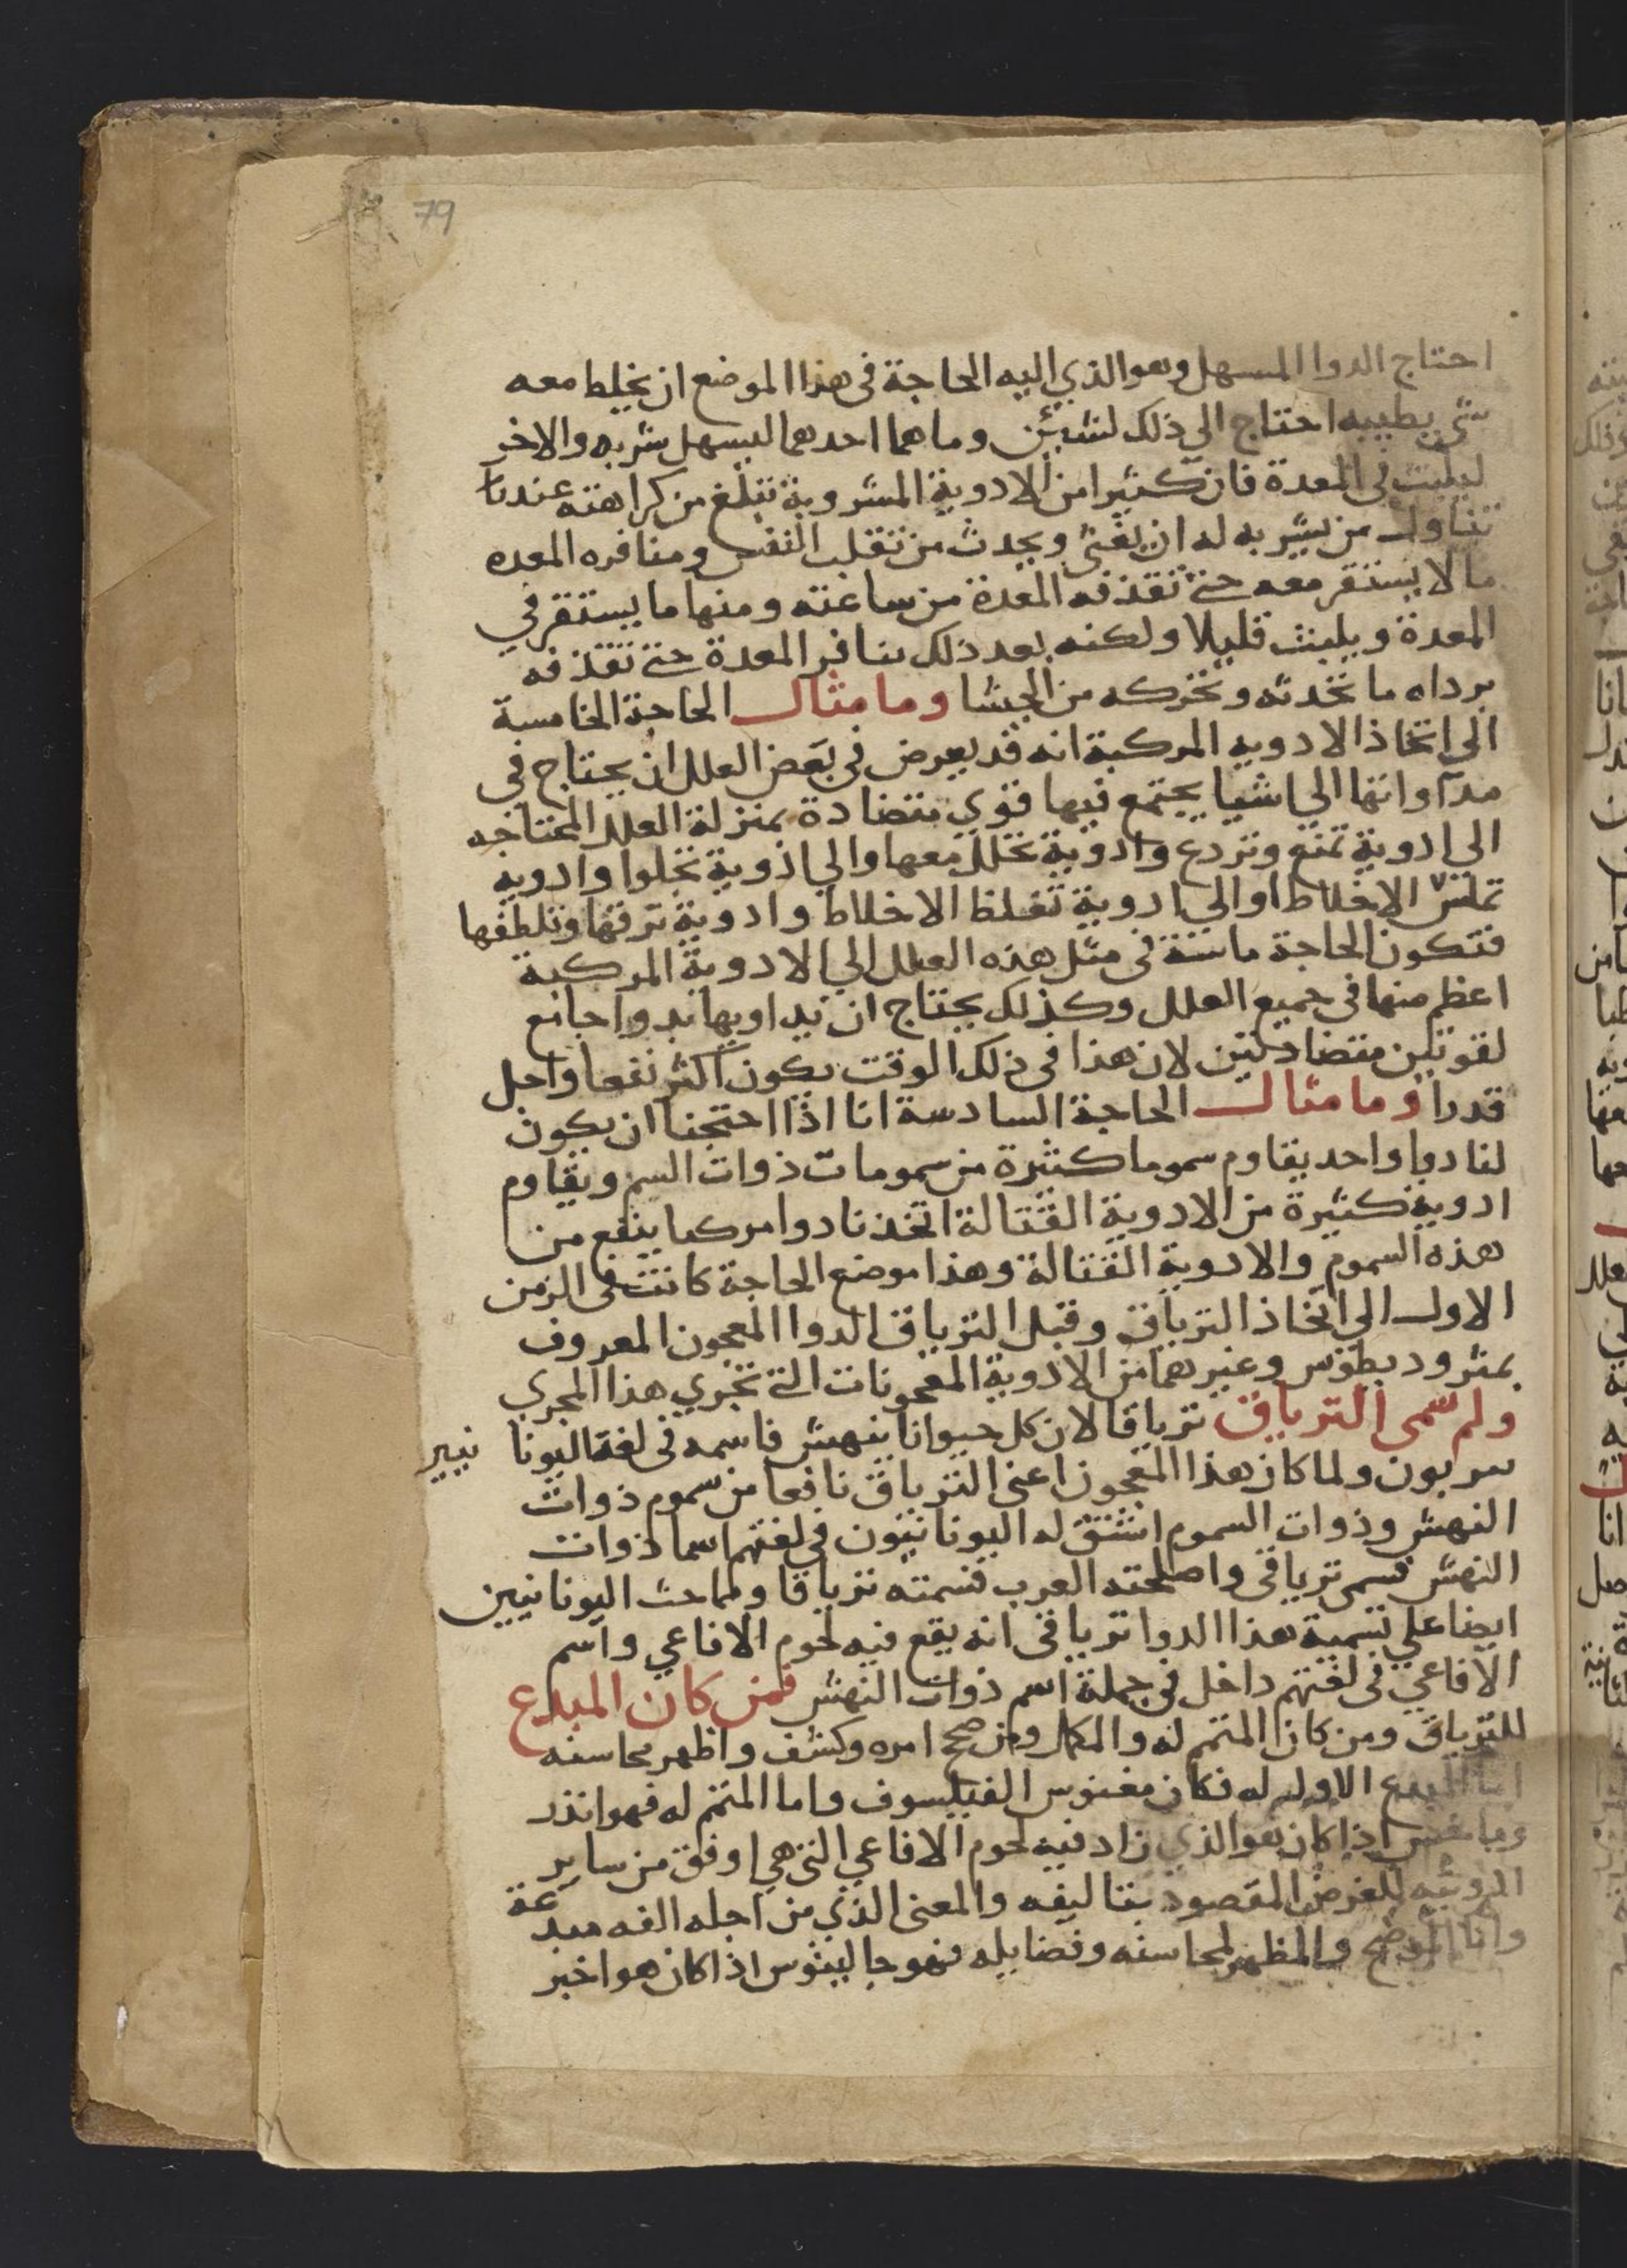 79
احتاج الدوا المسهل وهو الذي اليه الحاجة فى هذا الموضع ان يخلط معه
شى يطيبه احتاج الي ذلك لشيئين وما هما احدهما ليسهل شربه والاخر
ليلبث فى المعدة فان كثيرا من الادوية المشروبة تبلغ من كراهته عندنا
تناول من يشربه له ان يغثى ويحدث من تقلب النفس ومنافره المعده
ما لا يستقر معه حتى تقذفه المعدة من ساعته ومنها ما يستقر في
المعدة ويلبث قليلا ولكنه بعد ذلك ينافر المعدة حتى تقذفه
برداه ما تحدثه وتحركه من الجشا وما مثال الحاجة الخامسة
الي اتخاذ الادويه المركبة انه قد يعرض في بعض العلل ان يحتاج في
مداواتها الي اشيا يجتمع فيها قوي متضادة بمنزلة العلل المحتاجه
الي ادوية تمنع وتردع وادوية تحلل معها والي ادوية تجلوا وادويه
تملس الاخلاط او الي ادوية تغلظ الاخلاط وادوية ترققها وتلطفها
فتكون الحاجة ماسة فى مثل هذه العلل الي الادوية المركبة
اعظم منها فى جميع العلل وكذلك يحتاج ان نداويها بدوا جامع
لقوتين متضادتين لان هذا فى ذلك الوقت يكون اكثر نفعا واجل
قدرا وما مثال الحاجة السادسة انا اذا احتجنا ان يكون
لنا دوا واحد يقاوم سموما كثيرة من سمومات ذوات السم ويقاوم
ادوية كثيرة من الادوية القتالة اتخذنا دوا مركبا ينفع من
هذه السموم والادوية القتالة وهذا موضع الحاجة كانت في الزمن
الاول الي اتخاذ الترياق وقبل الترياق الدوا المعجون المعروف
بمثروديطوس وغيرهما من الادوية المعجونات التى تجري هذا المجري
ولم سمى الترياق ترياقا لان كل حيوانا ينهش فاسمه فى لغة اليونا نيين
سربون ولما كان هذا المعجون اعنى الترياق نافعا من سموم ذوات
النهش وذوات السموم اشتق له اليونانيون في لغتهم اسما ذوات
النهش فسمى ترياقى واصلحته العرب فسمته ترياقا ومما حث اليونانيين
ايضا علي تسمية هذا الدوا ترياقى انه يقع فيه لحوم الافاعي واسم
الافاعي فى لغتهم داخل في جملة اسم ذوات النهش فمن كان المبدع
للترياق ومن كان المتمم له والمكمل ومن صحح امره وكشف واظهر محاسنه
اما المبدع الاول له فكان مغنوس الفيلسوف واما المتمم له فهو انذر
وماخس اذا كان هو الذي زاد فيه لحوم الافاعي التى هي اوفق من ساير
الادويه للغرض المقصود بتاليفه والمعنى الذي من اجله الفه مبدعه
واما الموضح والمظهر لمحاسنه وفضايله فهو جالينوس اذا كان هو اخبر